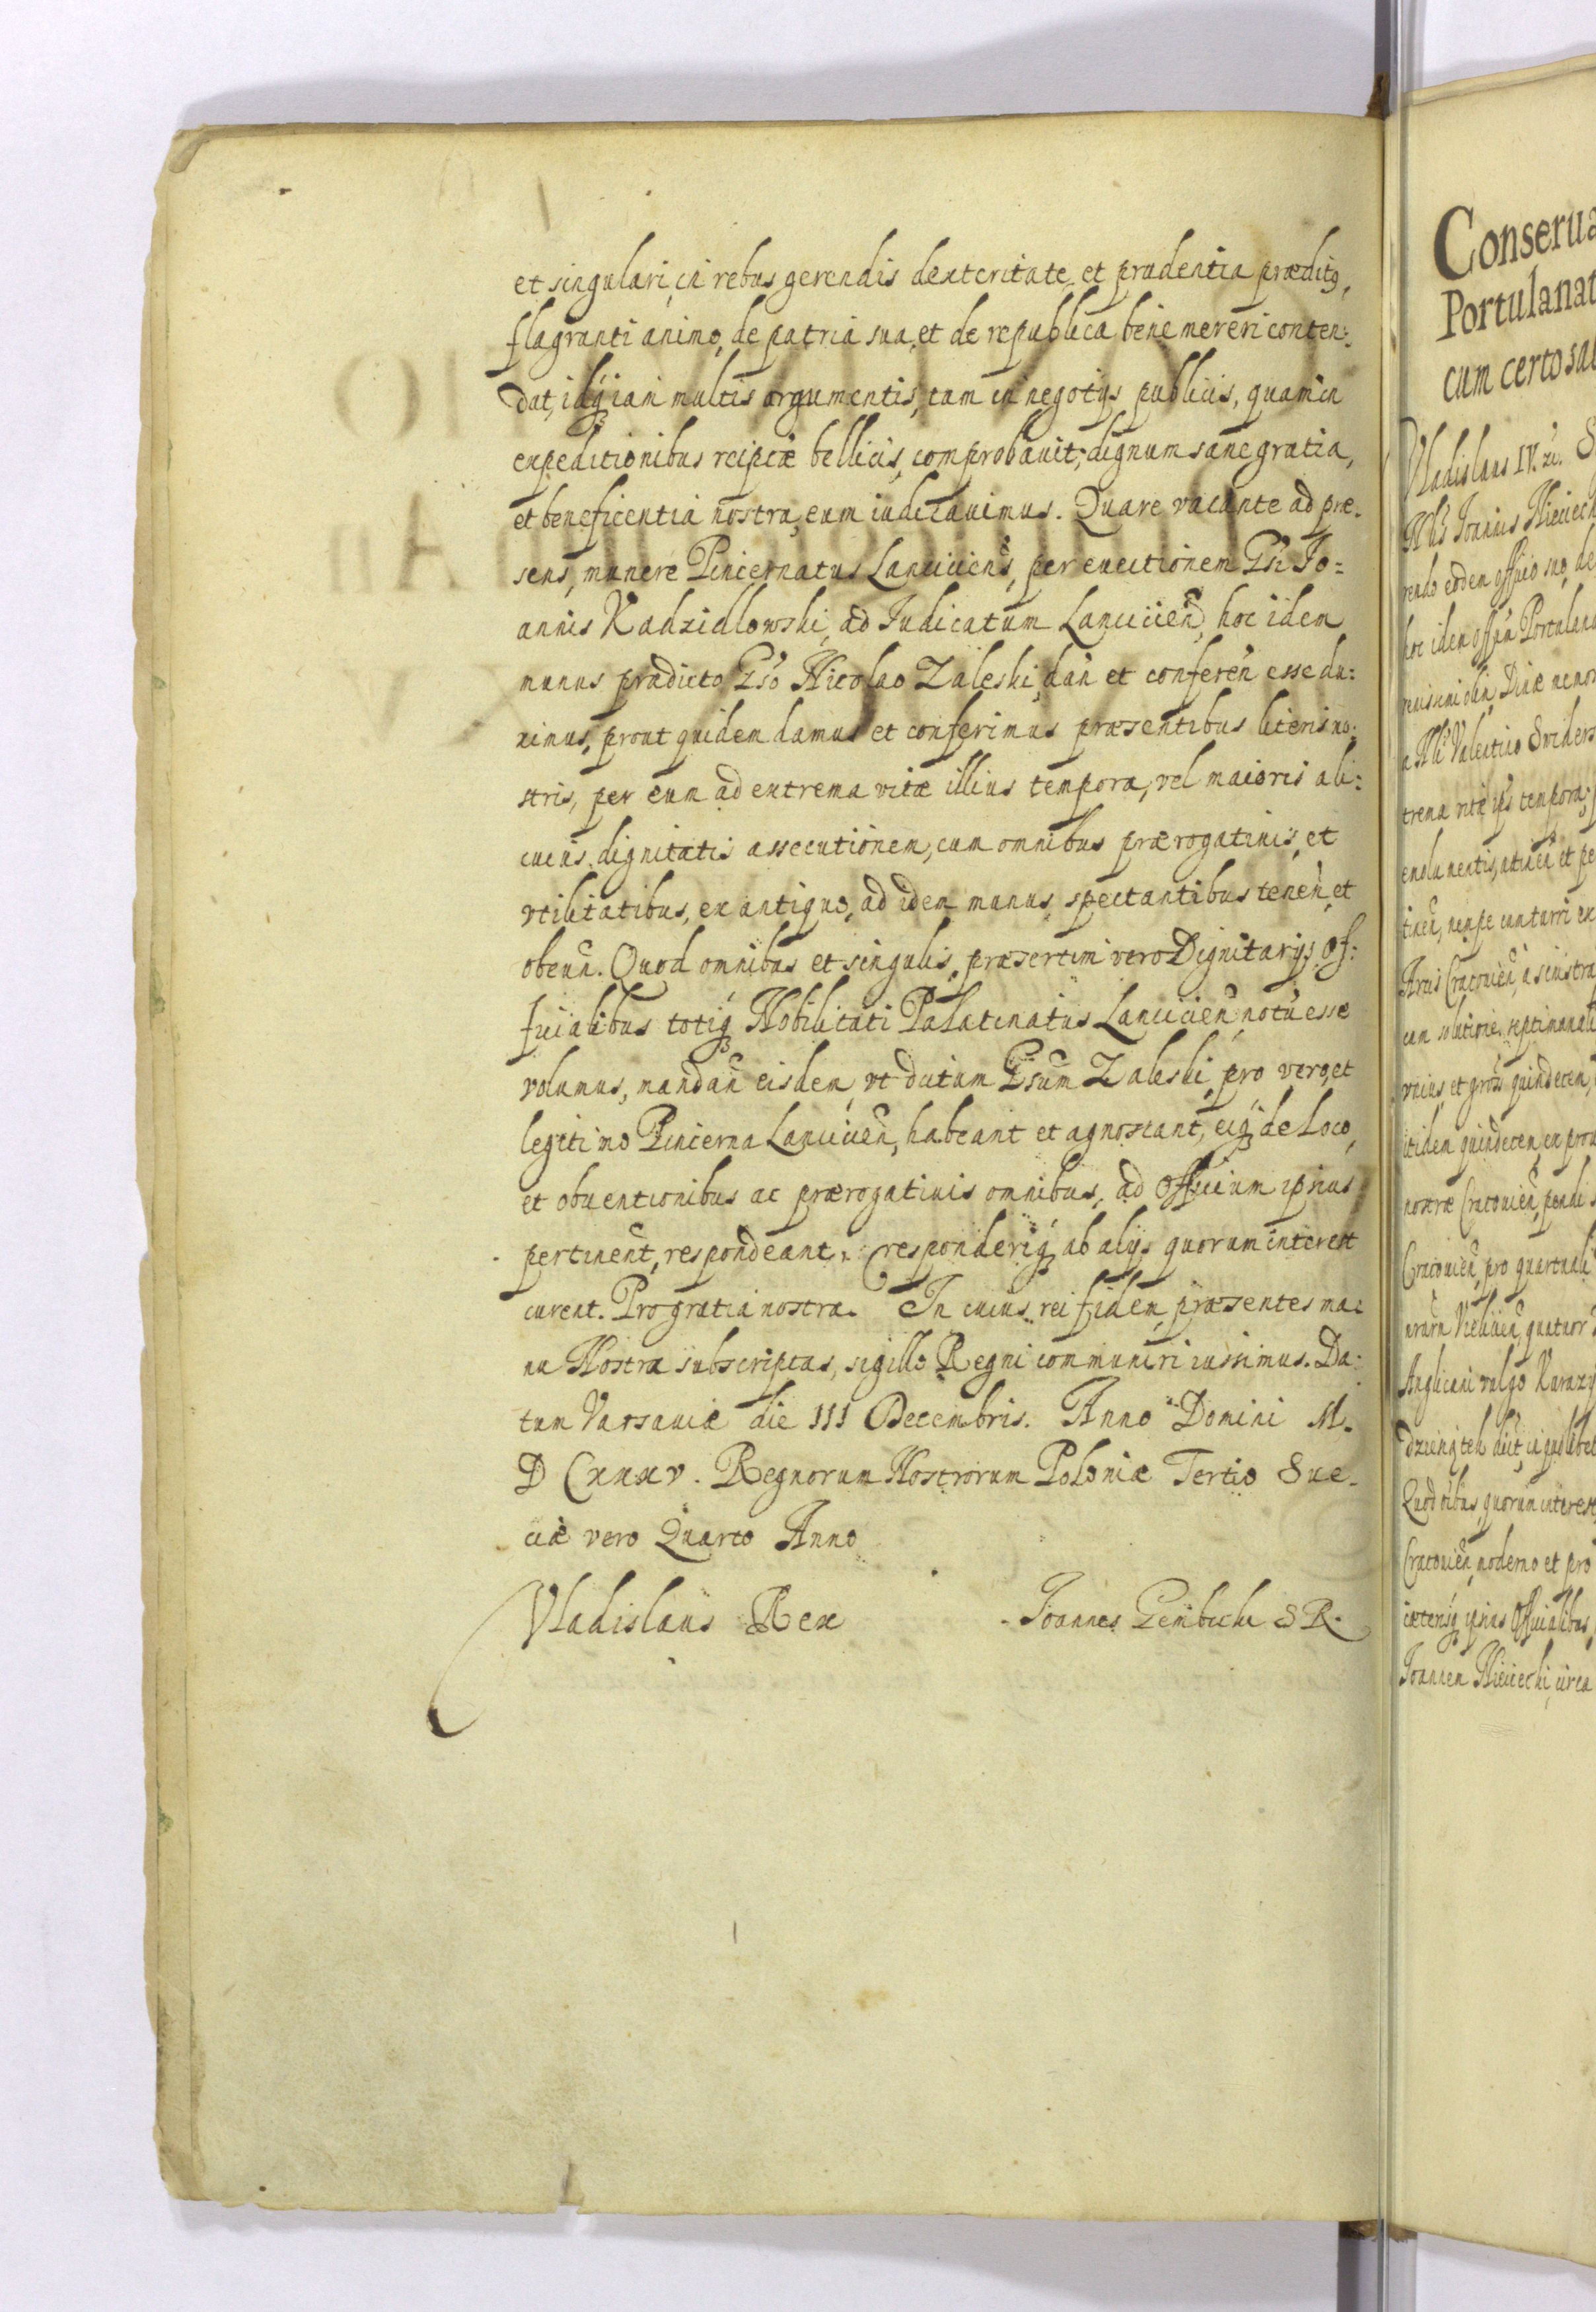 et singulari, in rebus gerendis dexteritate et prudentia præditꝰ,
flagranti animo, de patria sua, et de republica bene mereri conten:
dat, idq́ꝫ iam multis argumentis, tam in negotijs publicis, quam in
expeditionibus reipcæ bellicis, comprobauit, dignum sane gratia,
et beneficentia nostra, eum iudicauimus. Quare vacante ad præ-
sens, munere Pincernatus Lancicien̄s, per euectionem Gsi Jo=
annis Kadzidlowski, ad Judicatum Lancicien̄, hoc idem
munus prædicto Gsō Nicolao Zaleski, dan̄ et conferen̄ esse du:
ximus, prout quidem damus et conferimus præsentibus literis no:
stris, per eum ad extrema vitæ illius tempora, vel maioris ali:
cuius dignitatis assecutionem, cum omnibus prærogatiuis, et
vtilitatibus, ex antiquo, ad idem munus, spectantibus tenen̄, et
obeun̄. Quod omnibus et singulis, præsertim vero Dignitarijs, Of:
ficialibus totiq́ꝫ Nobilitati Palatinatus Lancicien̄ notū esse
volumus, mandan̄ eisdem, vt dictum Gsum̄ Zaleski, pro vero, et
legitimo Pincerna Lancicien̄, habeant et agnoscant, eiq́ꝫ de Loco,
et obuentionibus ac prærogatiuis omnibus, ad Officium ipsius
pertinen̄t, respondeant, responderiq́ꝫ ab alijs quorum interest
curent. Pro gratia nostra. In cuius rei fidem, præsentes ma:
nu Nostra subscriptas, sigillo Regni communiri iussimus. Da:
tum Varsauiæ die III Decembris. Anno Domini M.
D Cxxxv. Regnorum Nostrorum Poloniæ Tertio Sue-
ciæ vero Quarto Anno
Vladislaus Rex Joannes Gembicki S R.
Conserua
Portulanat
cum certo sal
Vladislaus IV. &c. S
Nb̄s Joannis Nieciec
rendo eodem officio suo, de
hoc idem offm̄ Portulana
trema vitæ ips tempora,
Arcis Cracouien̄, a sinistra
cum solutione septimanali
vnius, et gros quindecem,
itidem quindecem, ex prou
nostræ Cracouien̄, pendi s
Cracouien̄, pro quartuali
quatuor
Anglicani vulgo Karazy
Quod oībus, quorum interest,
Cracouien̄, moderno et pro
cæterisq́ꝫ ipsius Officialibus,
Joannem Nieciecki, circa